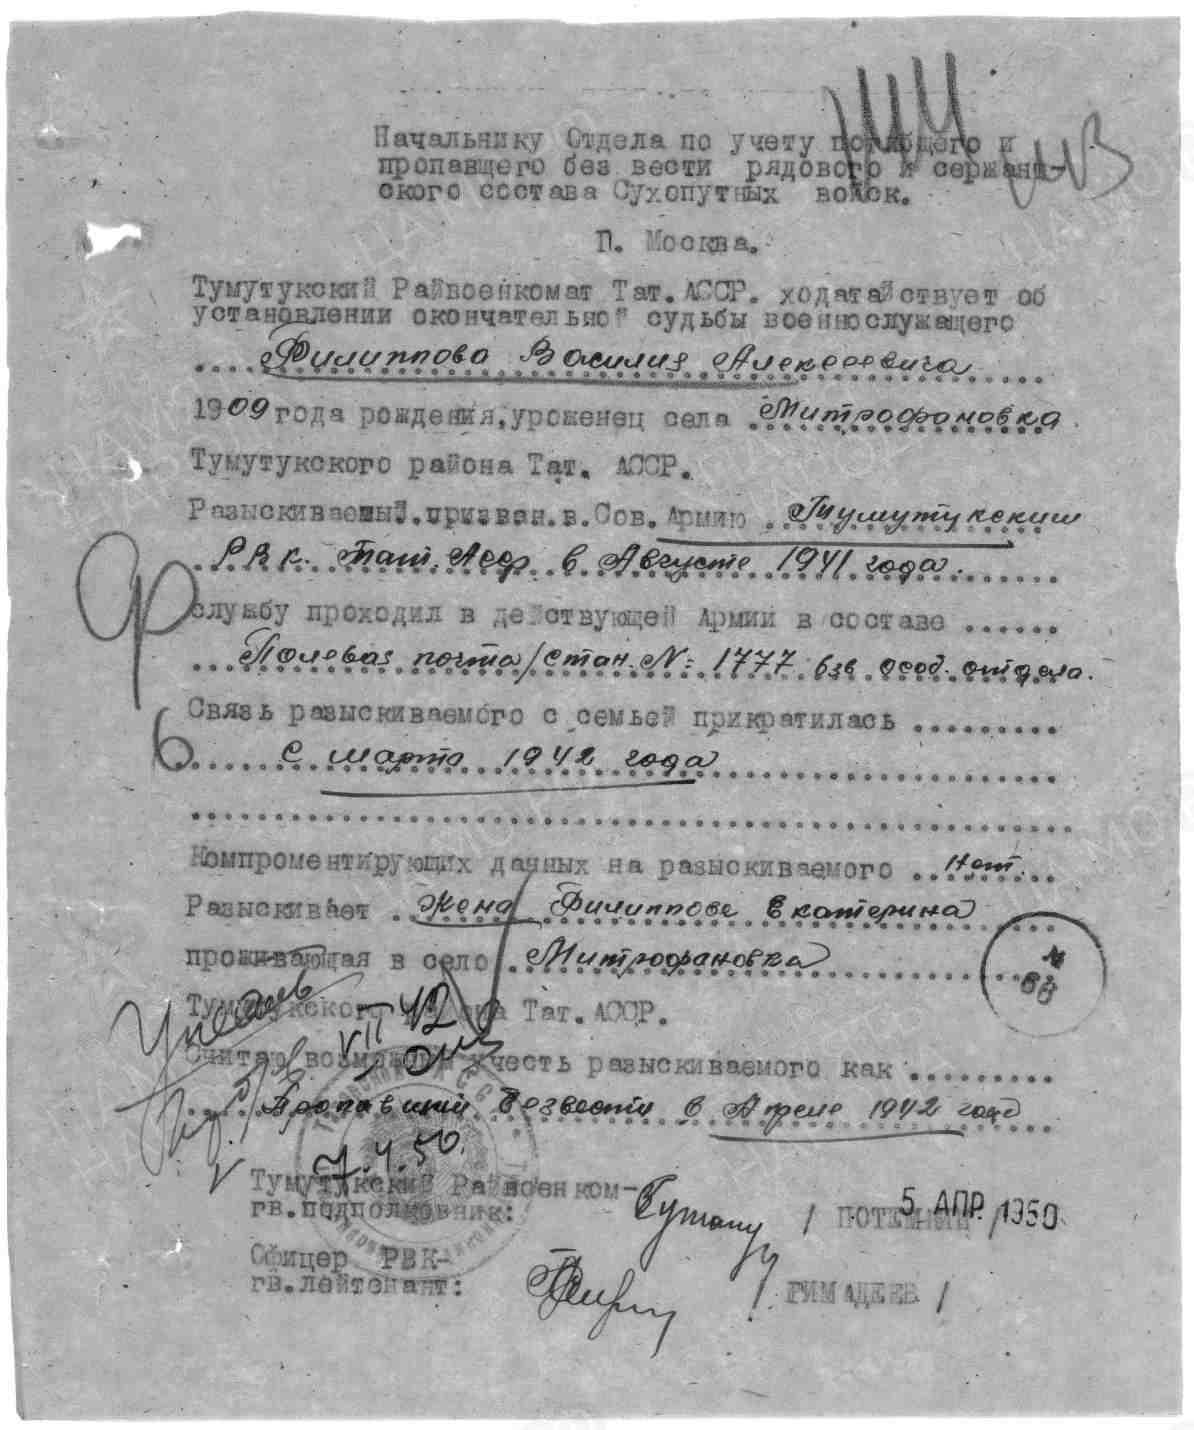 Начальнику Отдела по учету погибщего и
пропавщего без вести рядового и сержант-
ского состава Сухопутных войск.
П. Москва.
Тумутукский Райвоенкомат Тат. АССР. ходатайствует об
установлении окончательной судьбы военнослужащего
Филиппова Василия Алексеевича
1909 года рождения, уроженец села Митрофановка
Тумутукского района Тат. АССР.
Разыскиваемый призван в Сов. Армию Тумутукским
РВК. Тат. Асср. в Августе 1941 года.
службу проходил в действующей Армии в составе ......
Полевая почта/стан. №: 1777 взв особ. отдела.
Связь разыскиваемого с семьей прикратилась .........
с марта 1942 года
Компроментирующих данных на разыскиваемого Нет.
Разыскивает жена Филиппова Екатерина
проживающая в село Митрофановка
Тумутукского района Тат. АССР.
Считаю возможным учесть разыскиваемого как .........
Пропавший безвести в Апреле 1942 года
7.4.50.
Тумутукский Райвоенком-
гв.подполковник: / /
5 АПР 1950
Офицер РВК-
гв.лейтенант: / ГИМАДЕЕВ /